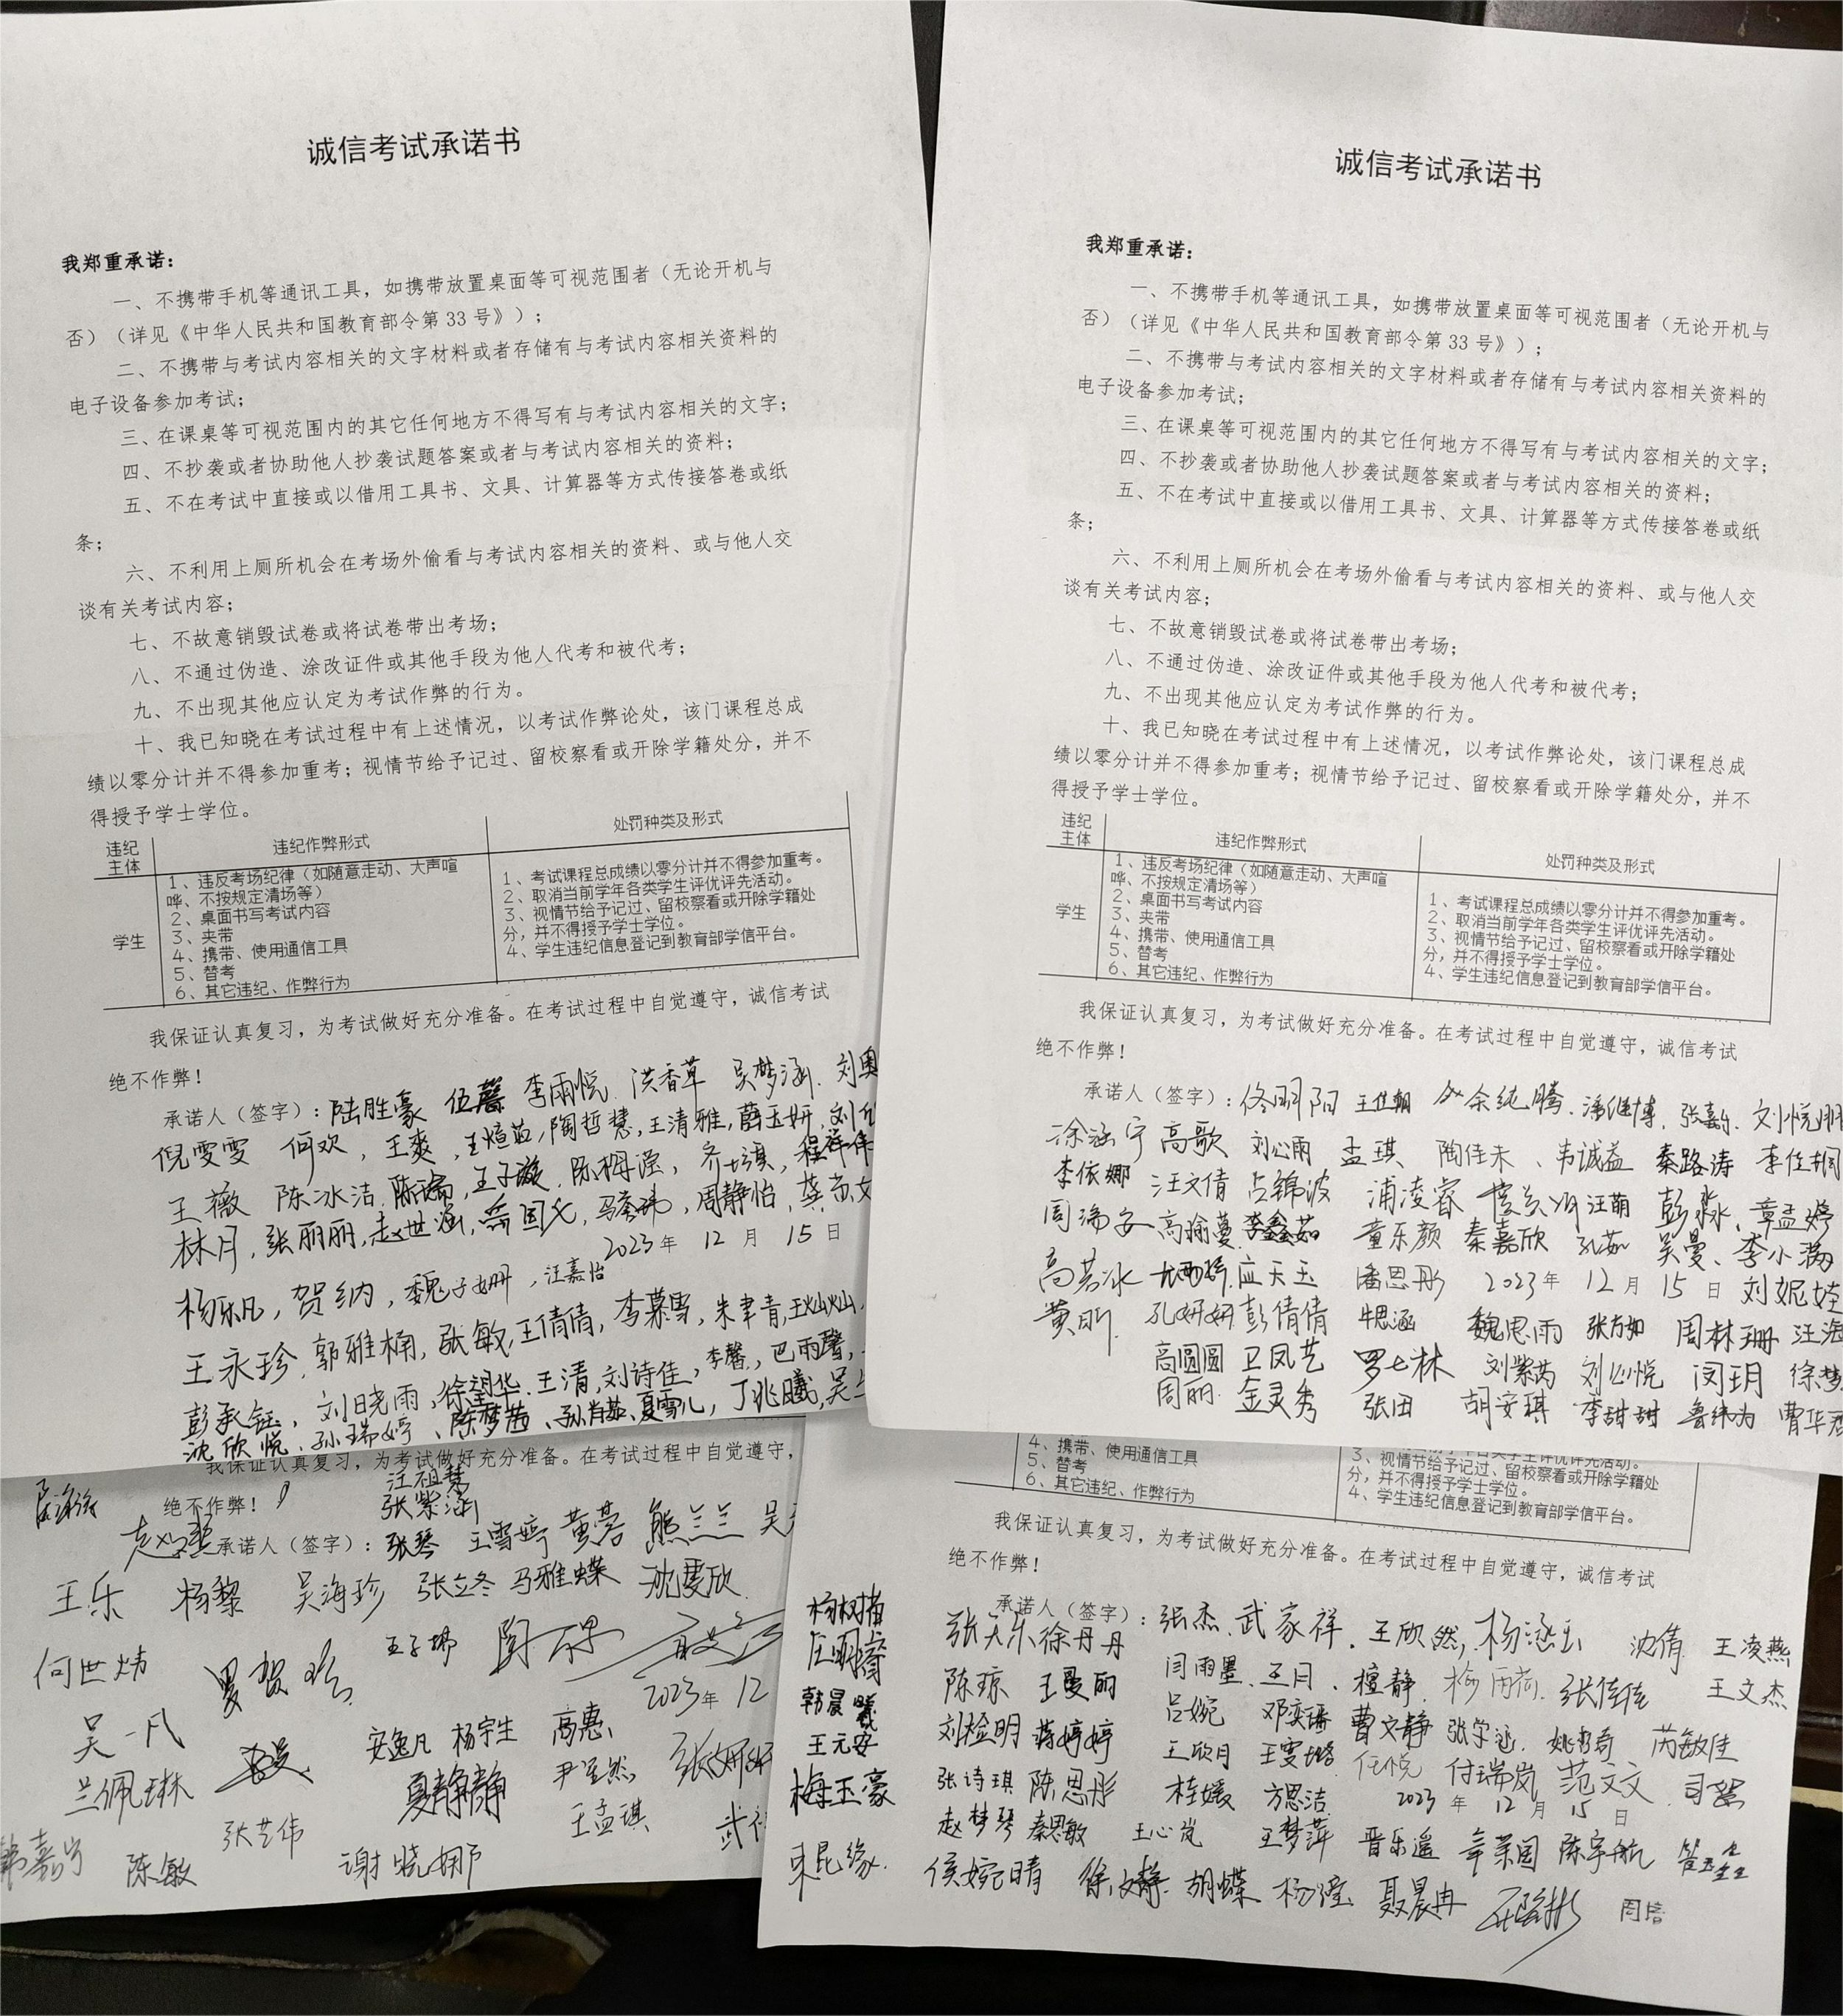 诚信考试承诺书
我郑重承诺：
一、不携带手机等通讯工具，如携带放置桌面等可视范围者（无论开机与
否）（详见《中华人民共和国教育部令第 33 号》）；
二、不携带与考试内容相关的文字材料或者存储有与考试内容相关资料的
电子设备参加考试；
三、在课桌等可视范围内的其它任何地方不得写有与考试内容相关的文字；
四、不抄袭或者协助他人抄袭试题答案或者与考试内容相关的资料；
五、不在考试中直接或以借用工具书、文具、计算器等方式传接答卷或纸
条；
六、不利用上厕所机会在考场外偷看与考试内容相关的资料、或与他人交
谈有关考试内容；
七、不故意销毁试卷或将试卷带出考场；
八、不通过伪造、涂改证件或其他手段为他人代考和被代考；
九、不出现其他应认定为考试作弊的行为。
十、我已知晓在考试过程中有上述情况，以考试作弊论处，该门课程总成
绩以零分计并不得参加重考；视情节给予记过、留校察看或开除学籍处分，并不
得授予学士学位。
违纪主体 违纪作弊形式 处罚种类及形式
学生
1、违反考场纪律（如随意走动、大声喧
哗、不按规定清场等）
2、桌面书写考试内容
3、夹带
4、携带、使用通信工具
5、替考
6、其它违纪、作弊行为
1、考试课程总成绩以零分计并不得参加重考。
2、取消当前学年各类学生评优评先活动。
3、视情节给予记过、留校察看或开除学籍处
分，并不得授予学士学位。
4、学生违纪信息登记到教育部学信平台。
我保证认真复习，为考试做好充分准备。在考试过程中自觉遵守，诚信考试
绝不作弊！
承诺人（签字）：陆胜豪 伍馨 李雨悦 洪香草 吴梦涵
倪雯雯 何欢，王爽，王煊茹，陶哲慧，王清雅，薛玉妍
王薇 陈冰洁 陈瑞，王子璇
林月，张丽丽，赵世涵，周静怡
2023 年 12 月 15 日
杨乐凡，贺纳，魏子姗，汪嘉怡
王永珍，郭雅楠，张敏，王倩倩，李慕雪，朱聿青，王灿灿
彭承钰，刘日晓雨，徐翊华，王清，刘诗佳，李馨，巴雨馨
沈欣悦、孙瑞婷、陈梦茜、孙肖茹、夏雪儿，丁兆曦
诚信考试承诺书
我郑重承诺：
一、不携带手机等通讯工具，如携带放置桌面等可视范围者（无论开机与
否）（详见《中华人民共和国教育部令第 33 号》）；
二、不携带与考试内容相关的文字材料或者存储有与考试内容相关资料的
电子设备参加考试；
三、在课桌等可视范围内的其它任何地方不得写有与考试内容相关的文字；
四、不抄袭或者协助他人抄袭试题答案或者与考试内容相关的资料；
五、不在考试中直接或以借用工具书、文具、计算器等方式传接答卷或纸
条；
六、不利用上厕所机会在考场外偷看与考试内容相关的资料、或与他人交
谈有关考试内容；
七、不故意销毁试卷或将试卷带出考场；
八、不通过伪造、涂改证件或其他手段为他人代考和被代考；
九、不出现其他应认定为考试作弊的行为。
十、我已知晓在考试过程中有上述情况，以考试作弊论处，该门课程总成
绩以零分计并不得参加重考；视情节给予记过、留校察看或开除学籍处分，并不
得授予学士学位。
违纪主体 违纪作弊形式 处罚种类及形式
学生
1、违反考场纪律（如随意走动、大声喧
哗、不按规定清场等）
2、桌面书写考试内容
3、夹带
4、携带、使用通信工具
5、替考
6、其它违纪、作弊行为
1、考试课程总成绩以零分计并不得参加重考。
2、取消当前学年各类学生评优评先活动。
3、视情节给予记过、留校察看或开除学籍处
分，并不得授予学士学位。
4、学生违纪信息登记到教育部学信平台。
我保证认真复习，为考试做好充分准备。在考试过程中自觉遵守，诚信考试
绝不作弊！
承诺人（签字）：佟玥阳 王佳朝 余纯腾 潘继博 张嘉乐 刘悦
涂涵宁 高歌 刘心雨 孟琪 陶佳未、韦诚益 秦路涛 李佳桐
李依娜 汪文倩 吕锦波 浦凌睿 汪萌 彭淼、章孟婷
周瑞安 高瑜蔓 李鑫茹 童乐颜 秦嘉欣 孔茹 吴曼、李小满
高若冰 应天玉 潘思彤 2023 年 12 月 15 日 刘妮娃
黄玥 孔妍妍 彭倩倩 牛思涵 魏思雨 张方如 周林珊
高圆圆 卫凤艺 罗七林 刘紫芮 刘心悦 闵玥
周丽 金灵秀 张田 胡安琪 李甜甜 鲁纬为 曹华君
我保证认真复习，为考试做好充分准备。在考试过程中自觉遵守，
绝不作弊！
汪祖慧
张紫涵
承诺人（签字）：张琴 王雪婷 黄蓉 熊兰兰
王乐 杨黎 吴海珍 张立冬 马雅蝶 沈雯欣
何世炜 王子坤
2023 年 12
吴一凡 安逸凡 杨宇生 高惠
兰佩琳 夏静静
张艺伟 王孟琪
陈敏 谢晓娜
4、携带、使用通信工具
5、替考
6、其它违纪、作弊行为
3、视情节给予记过、留校察看或开除学籍处
分，并不得授予学士学位。
4、学生违纪信息登记到教育部学信平台。
我保证认真复习，为考试做好充分准备。在考试过程中自觉遵守，诚信考试
绝不作弊！
承诺人（签字）：张杰 武家祥 王欣然 杨涵玉 沈倩 王凌燕
张天乐 徐丹丹
陈琼 王曼丽 闫雨墨 王月 檀静 张佳佳 王文杰
刘检明 蒋婷婷 吕婉 邓奕璠 曹文静 张学涵 芮敏佳
王欣月 王雯璐 任悦 付瑞岚 范文文
张诗琪 陈思彤 桂媛 方思洁 2023 年 12 月 15 日
赵梦琴 秦思敏 王心岚 王梦萍 晋乐遥 陈宇航
侯婉晴 徐文静 胡蝶 杨滢 聂晨冉 周信
韩晨曦
王元安
梅玉豪